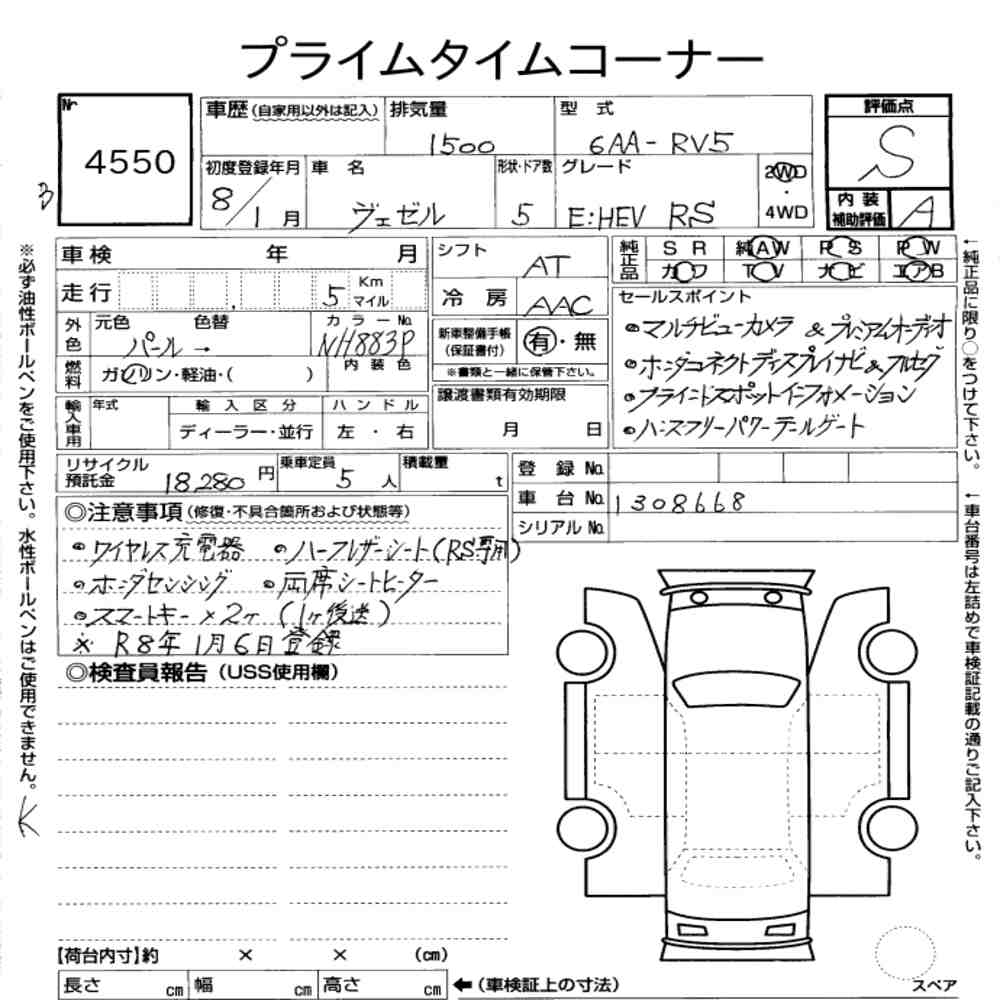 プライムタイムコーナー
Nr
4550
車歴(自家用以外は記入)
排気量
1500
型 式
6AA-RV5
評価点
S
初度登録年月
8/1月
車 名
ヴェゼル
形状・ドア数
5
グレード
E:HEV RS
2WD
・
4WD
内 装
補助評価
A
車検 年 月
シフト
AT
純正品
SR 純AW PS PW
カワ TV ナビ エアB
走行 5 Km マイル
冷 房
AAC
セールスポイント
・マルチビューカメラ & プレミアムオーディオ
・ホンダコネクトディスプレイナビ&フルセグ
・ブラインドスポットインフォメーション
・ハンズフリーパワーテールゲート
外色
元色 色替
パール →
カラーNo.
NH883P
新車整備手帳
(保証書付)
有・無
※書類と一緒に保管下さい。
燃料
ガソリン・軽油・( )
内 装 色
譲渡書類有効期限
月 日
輸入車用
年式
輸 入 区 分
ディーラー・並行
ハ ン ド ル
左 ・ 右
リサイクル
預託金
18,280円
乗車定員
5人
積載量
t
登 録 No.
車 台 No.
1308668
シリアルNo.
◎注意事項(修復・不具合箇所および状態等)
・ワイヤレス充電器 ・ハーフレザーシート(RS専用)
・ホンダセンシング ・両席シートヒーター
・スマートキー×2ケ (1ヶ後送)
※ R8年1月6日登録
◎検査員報告(USS使用欄)
【荷台内寸】約 × × (cm)
長さ cm 幅 cm 高さ cm
←(車検証上の寸法)
スペア
※必ず油性ボールペンをご使用下さい。水性ボールペンはご使用できません。
K
←純正品に限り○をつけて下さい。
←車台番号は左詰めで車検証記載の通りご記入下さい。